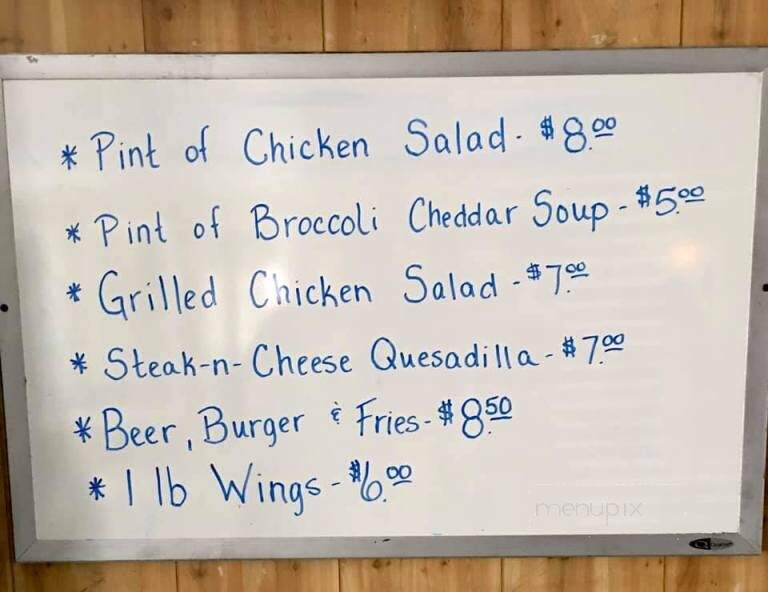 * Pint of Chicken Salad - $8.00
* Pint of Broccoli Cheddar Soup - $5.00
* Grilled Chicken Salad - $7.00
* Steak-n-Cheese Quesadilla - $7.00
* Beer, Burger & Fries - $8.50
* 1 lb Wings - $6.00
menupix